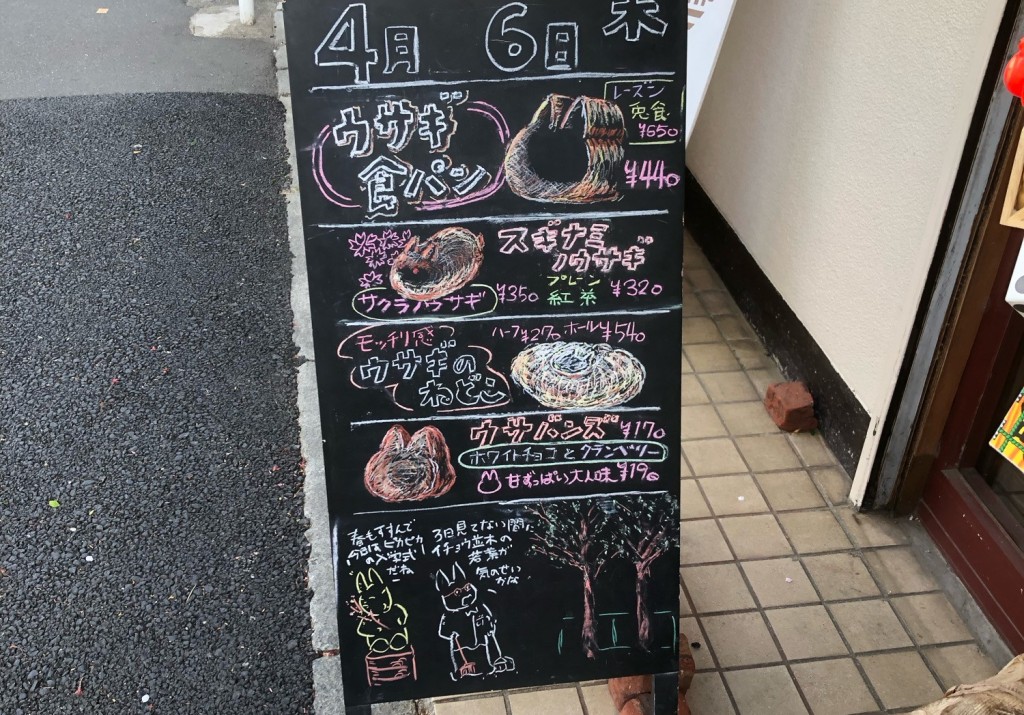 4月 6日 木
ウサギ
食パン
レーズン
兎食
¥650
¥440
スギナミ
ノウサギ
プレーン
紅茶
¥320
サクラノウサギ
¥350
モッチリ感
ウサギの
ねどこ
ハーフ¥270 ホール¥540
ウサバンズ ¥170
ホワイトチョコとクランベリー
甘ずっぱい大人味 ¥190
春もすすんで
今日はピカピカ
の入学式
だねー
3日見てない間に
イチョウ並木の
若葉が
気のせい
かな